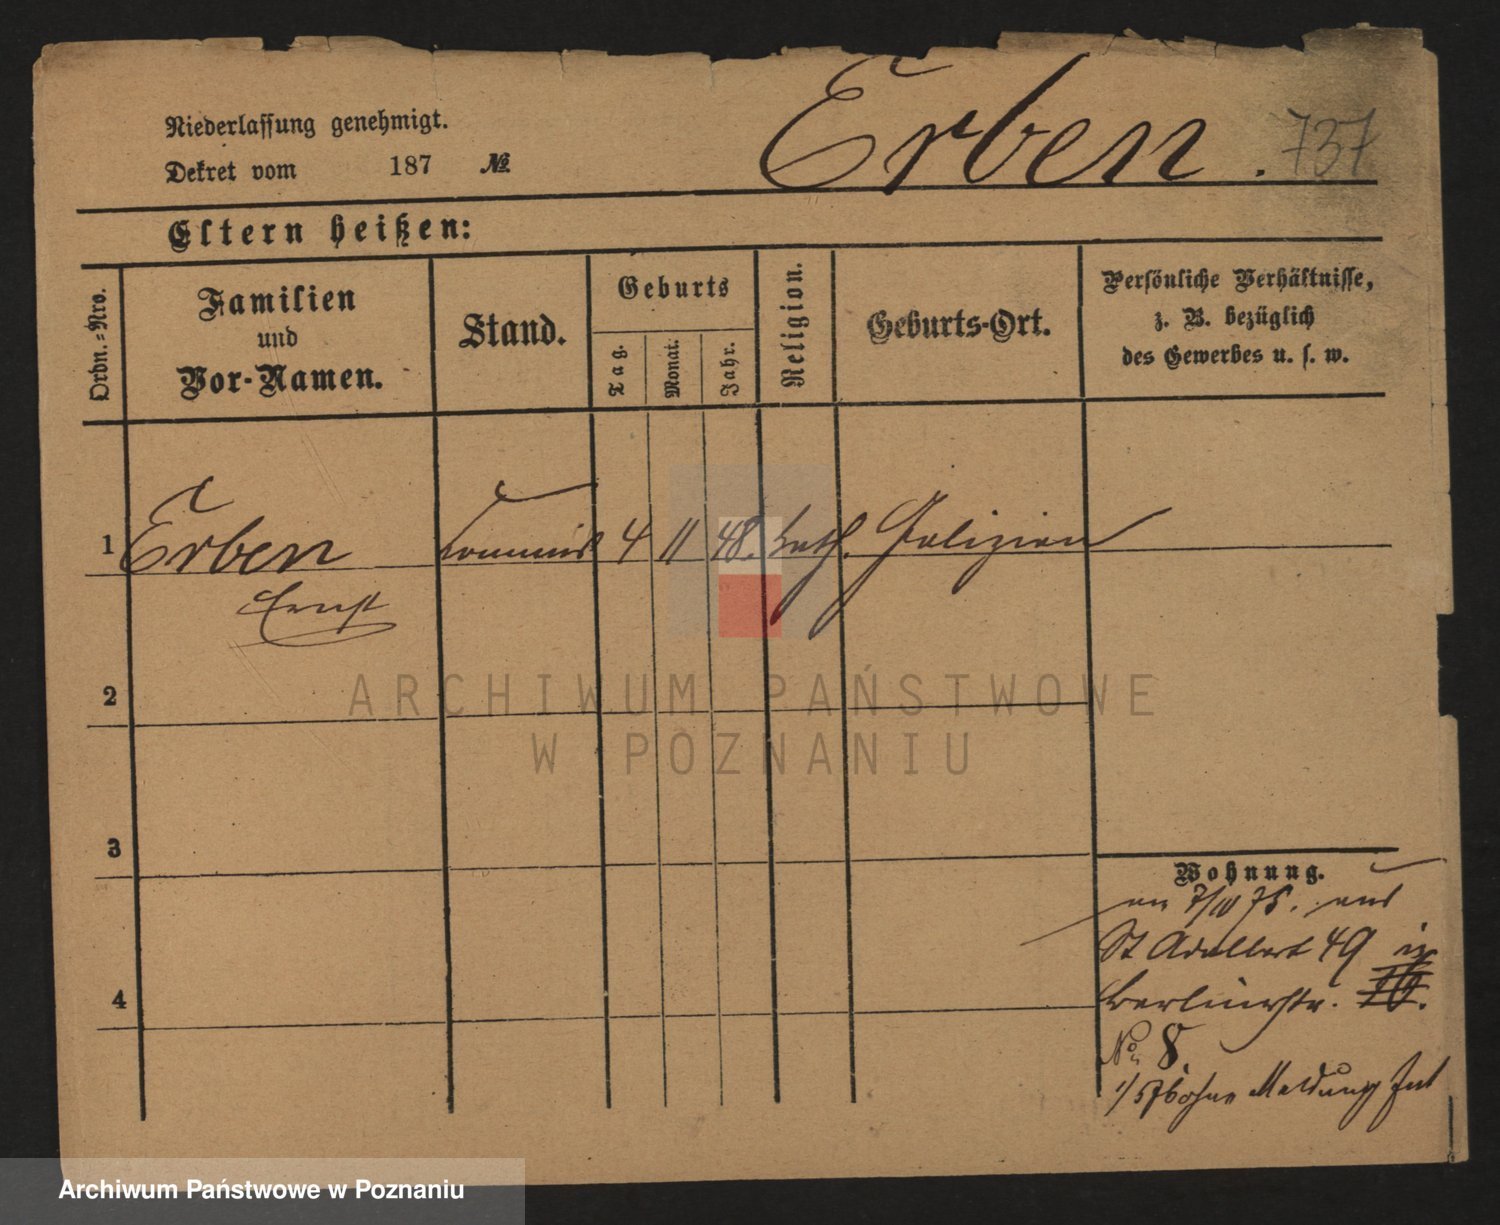 Erben . 737
Niederlassung genehmigt.
Dekret vom 187 №
Eltern heißen:
Ordn.-Nro.
Familien
und
Vor-Namen.
Stand.
Geburts
Tag.
Monat.
Jahr.
Religion.
Geburts-Ort.
Persönliche Verhältnisse,
z. B. bezüglich
des Gewerbes u. s. w.
1 Erben Commis 4 11 48. kath. Galizien
Ernst
2
3
4
Wohnung.
75. aus
St Adalbert 49 in
Berlinerstr.
No 8.
ohne Meldung
ARCHIWUM PAŃSTWOWE
W POZNANIU
Archiwum Państwowe w Poznaniu